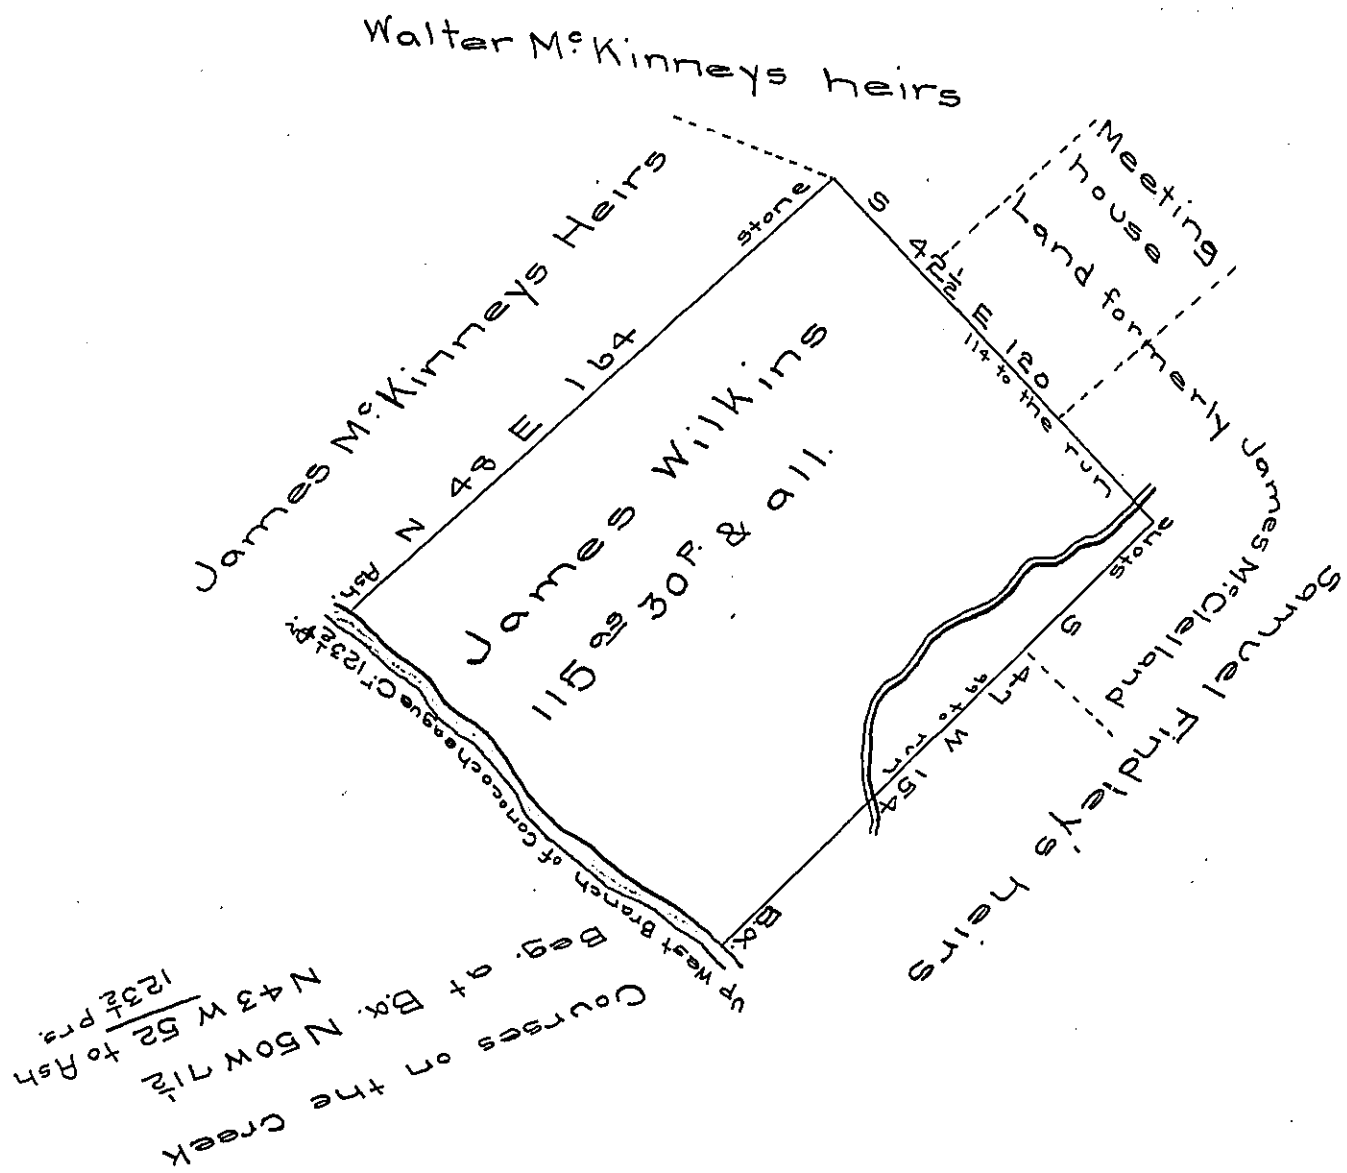 Walter Mc. Kinneys heirs
James Mc. Kinneys Heirs
Meeting
house
Land formerly James Mc. Clelland
Samuel Findley's heirs
stone
S 42½ E 120
114 to the run
N 48 E 164
James Wilkins
115 as 30 P. & all.
Ash.
stone
S 47 W 154
99 to run
B.o.
Up West Branch of Conococheague Cr. 123½ pr.
Courses on the Creek
Beg. at B.o. N50W 71½
N43W 52 to Ash
123½ prs.